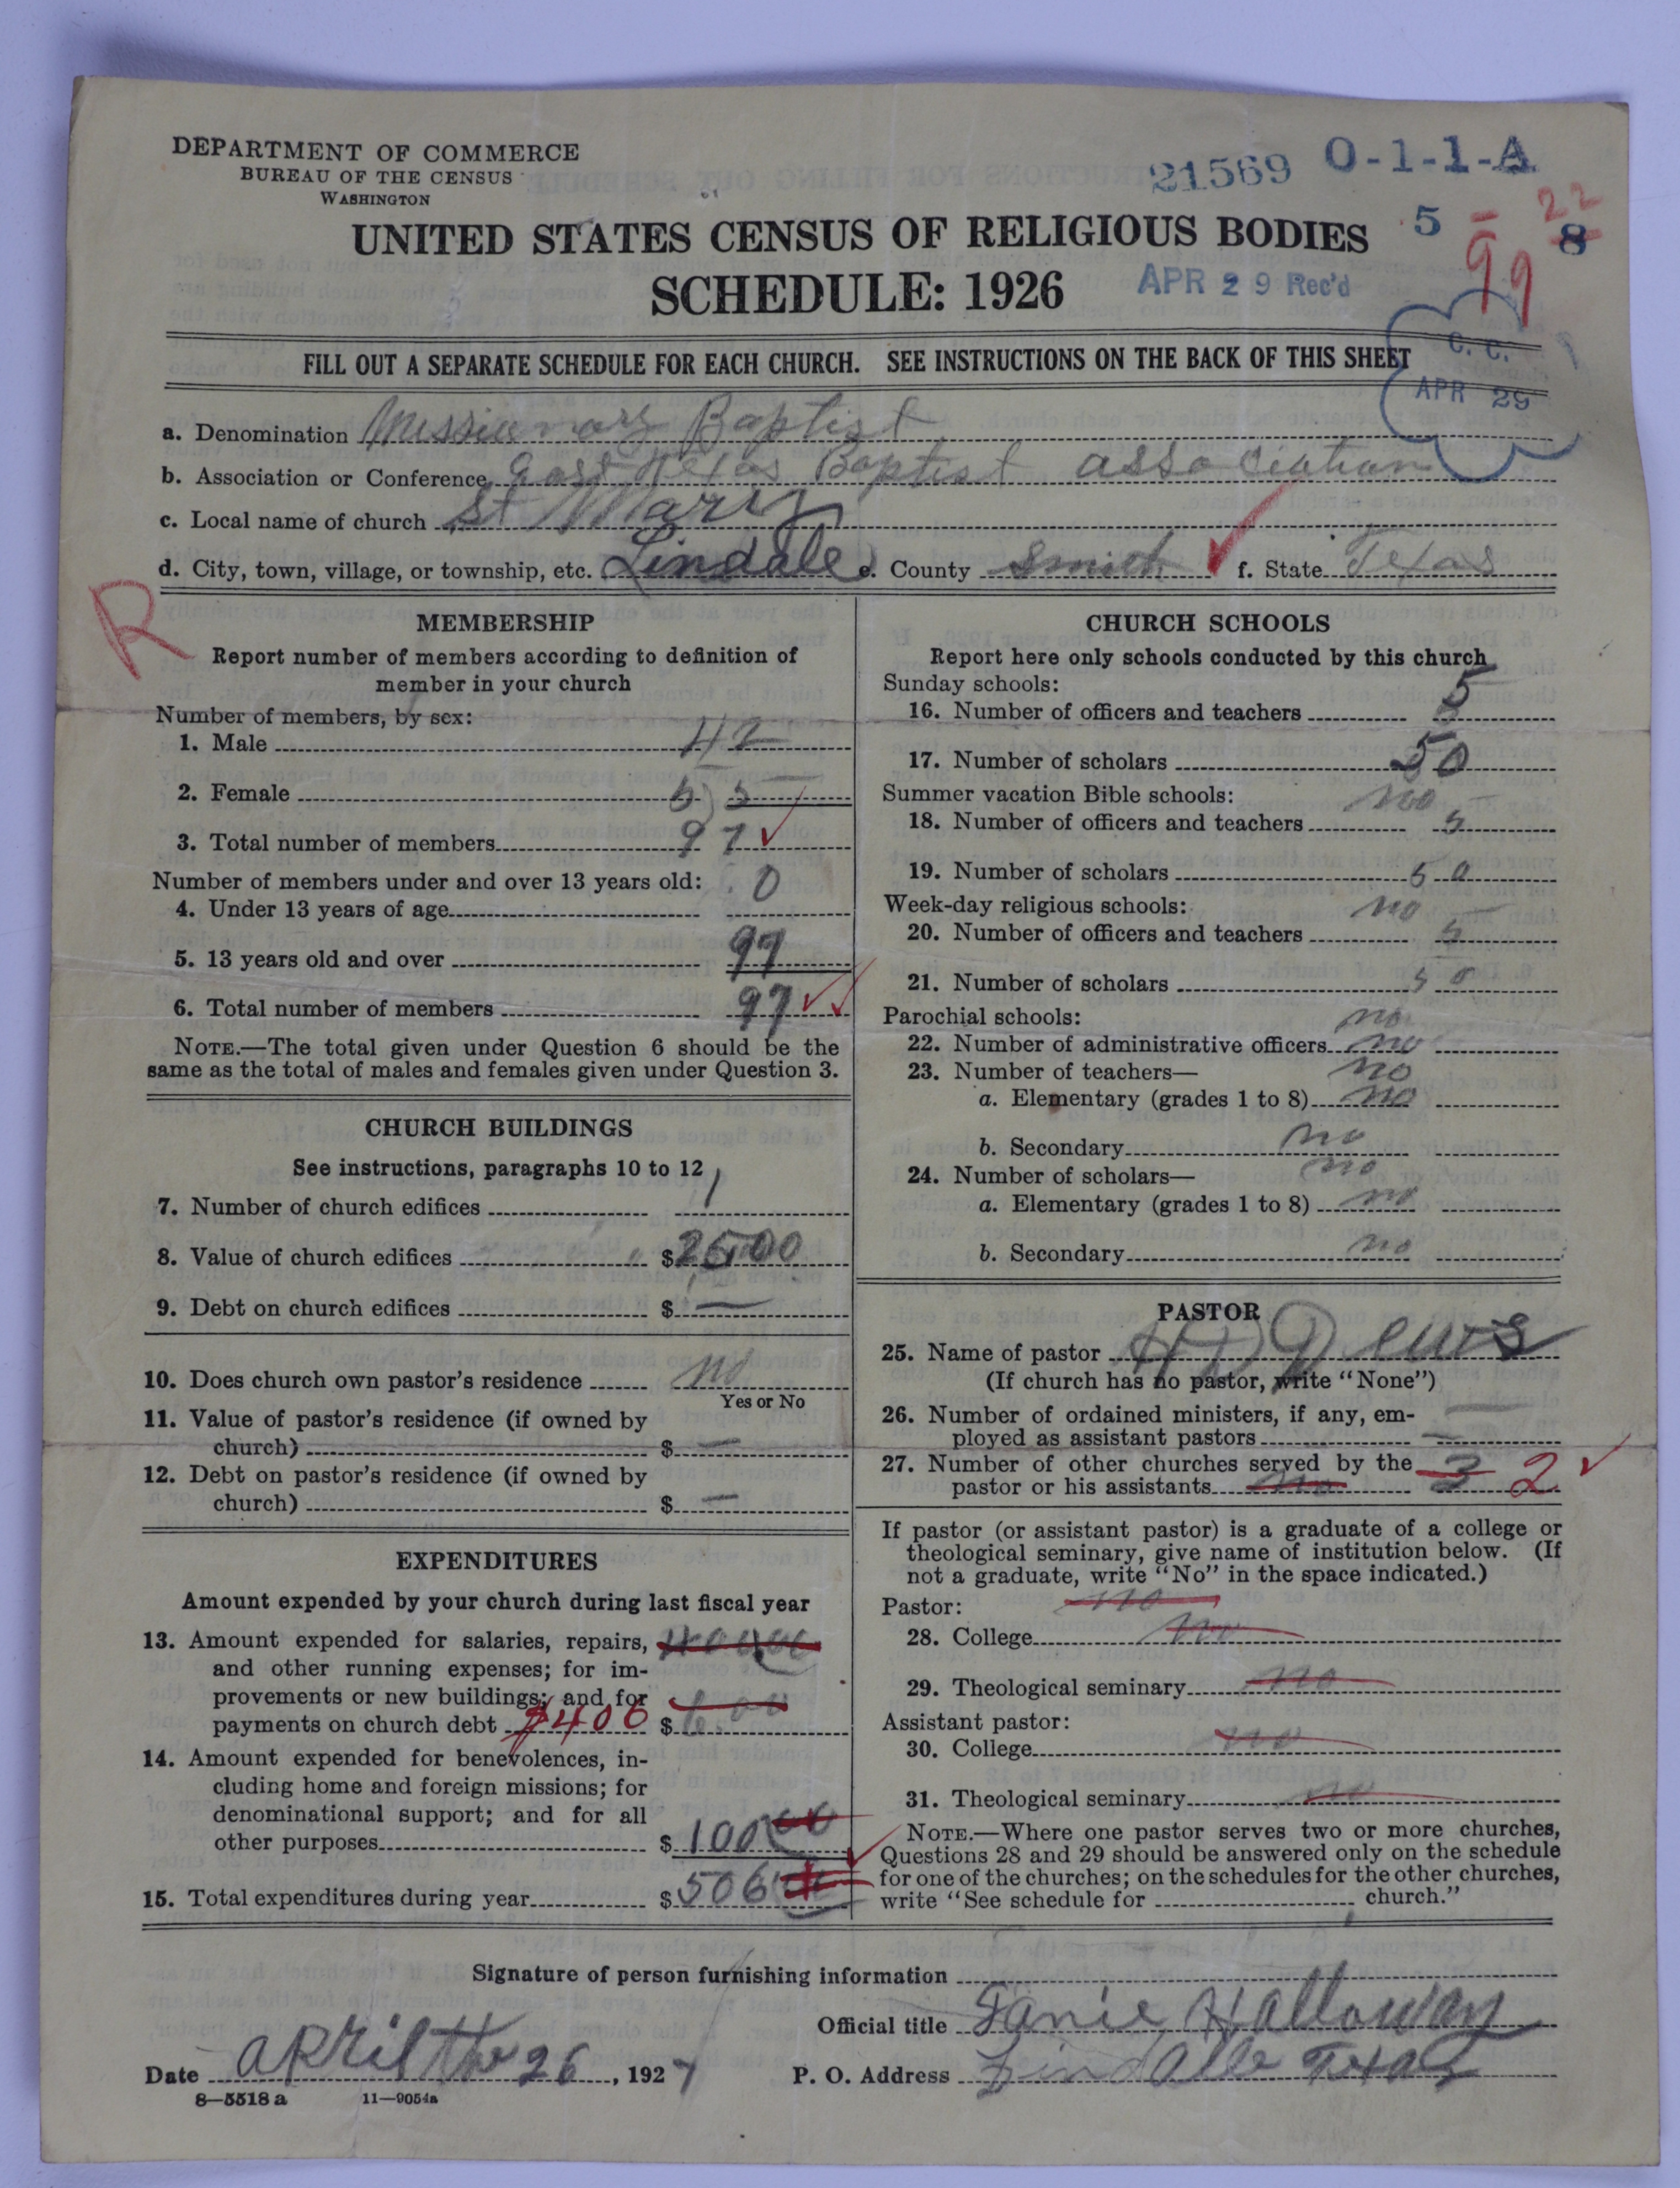 DEPARTMENT OF COMMERCE
BUREAU OF THE CENSUS
WASHINGTON
21569 O-1-1-A
5 - 22 8
99
UNITED STATES CENSUS OF RELIGIOUS BODIES
SCHEDULE: 1926
APR 29 Rec'd
C. C.
APR 29
FILL OUT A SEPARATE SCHEDULE FOR EACH CHURCH. SEE INSTRUCTIONS ON THE BACK OF THIS SHEET
a. Denomination Missionary Baptist
b. Association or Conference East Texas Baptist association
c. Local name of church St Mary
d. City, town, village, or township, etc. Lindale e. County Smith f. State Texas
R
MEMBERSHIP
Report number of members according to definition of
member in your church
Number of members, by sex:
1. Male 42
2. Female 55
3. Total number of members 97
Number of members under and over 13 years old: 0
4. Under 13 years of age
5. 13 years old and over 97
6. Total number of members 97
NOTE.—The total given under Question 6 should be the
same as the total of males and females given under Question 3.
CHURCH BUILDINGS
See instructions, paragraphs 10 to 12
7. Number of church edifices 1
8. Value of church edifices $2500
9. Debt on church edifices $ —
10. Does church own pastor's residence no
Yes or No
11. Value of pastor's residence (if owned by
church) $ —
12. Debt on pastor's residence (if owned by
church) $ —
EXPENDITURES
Amount expended by your church during last fiscal year
13. Amount expended for salaries, repairs, 400.00
and other running expenses; for im-
provements or new buildings; and for
payments on church debt $406 $6.00
14. Amount expended for benevolences, in-
cluding home and foreign missions; for
denominational support; and for all
other purposes $100 00
15. Total expenditures during year $506
CHURCH SCHOOLS
Report here only schools conducted by this church
Sunday schools:
16. Number of officers and teachers 5
17. Number of scholars 50
Summer vacation Bible schools: no
18. Number of officers and teachers 5
19. Number of scholars 50
Week-day religious schools: no
20. Number of officers and teachers 5
21. Number of scholars 50
Parochial schools: no
22. Number of administrative officers no
23. Number of teachers— no
a. Elementary (grades 1 to 8) no
b. Secondary no
24. Number of scholars— no
a. Elementary (grades 1 to 8) no
b. Secondary no
PASTOR
25. Name of pastor H D Dews
(If church has no pastor, write "None")
26. Number of ordained ministers, if any, em-
ployed as assistant pastors —
27. Number of other churches served by the
pastor or his assistants no 3 2
If pastor (or assistant pastor) is a graduate of a college or
theological seminary, give name of institution below. (If
not a graduate, write "No" in the space indicated.)
Pastor: no
28. College no
29. Theological seminary no
Assistant pastor:
30. College no
31. Theological seminary no
NOTE.—Where one pastor serves two or more churches,
Questions 28 and 29 should be answered only on the schedule
for one of the churches; on the schedules for the other churches,
write "See schedule for church."
Signature of person furnishing information
Official title Fanie Halloway
Date april the 26, 1927 P. O. Address Lindale Texas
8—5518 a 11—9054a